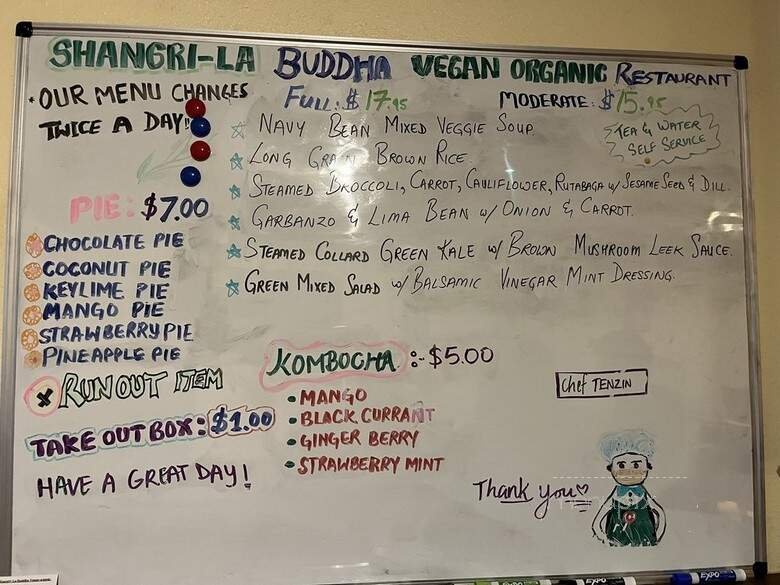 SHANGRI-LA BUDDHA VEGAN ORGANIC RESTAURANT
• OUR MENU CHANGES
TWICE A DAY!
FULL: $17.95
MODERATE: $15.95
TEA & WATER
SELF SERVICE
NAVY BEAN MIXED VEGGIE SOUP.
LONG GRAIN BROWN RICE.
STEAMED BROCCOLI, CARROT, CAULIFLOWER, RUTABAGA W/ SESAME SEED & DILL.
GARBANZO & LIMA BEAN W/ ONION & CARROT.
STEAMED COLLARD GREEN KALE W/ BROWN MUSHROOM LEEK SAUCE.
GREEN MIXED SALAD W/ BALSAMIC VINEGAR MINT DRESSING.
PIE: $7.00
CHOCOLATE PIE
COCONUT PIE
KEYLIME PIE
MANGO PIE
STRAWBERRY PIE
PINEAPPLE PIE
X RUN OUT ITEM
TAKE OUT BOX: $1.00
HAVE A GREAT DAY!
KOMBOCHA :- $5.00
• MANGO
• BLACK CURRANT
• GINGER BERRY
• STRAWBERRY MINT
Chef TENZIN
Thank you
EXPO
EXPO
EXPO